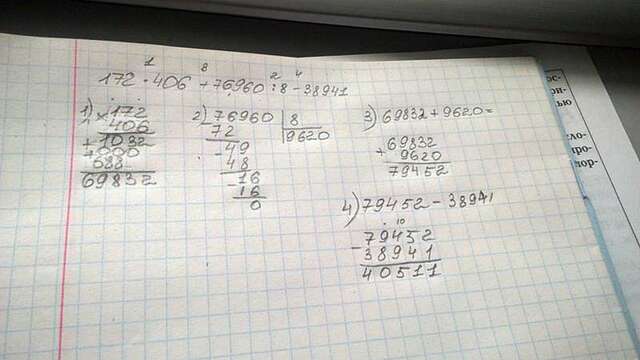 1 3 2 4
172 · 406 + 76960 : 8 - 38941
1) × 172
406
+ 1032
+ 000
688
69832
2) 76960 | 8
72 9620
- 49
48
- 16
16
0
3) 69832 + 9620 =
+ 69832
9620
79452
4) 79452 - 38941
10
- 79452
38941
40511
ос-
ью
ло-
про-
лор-